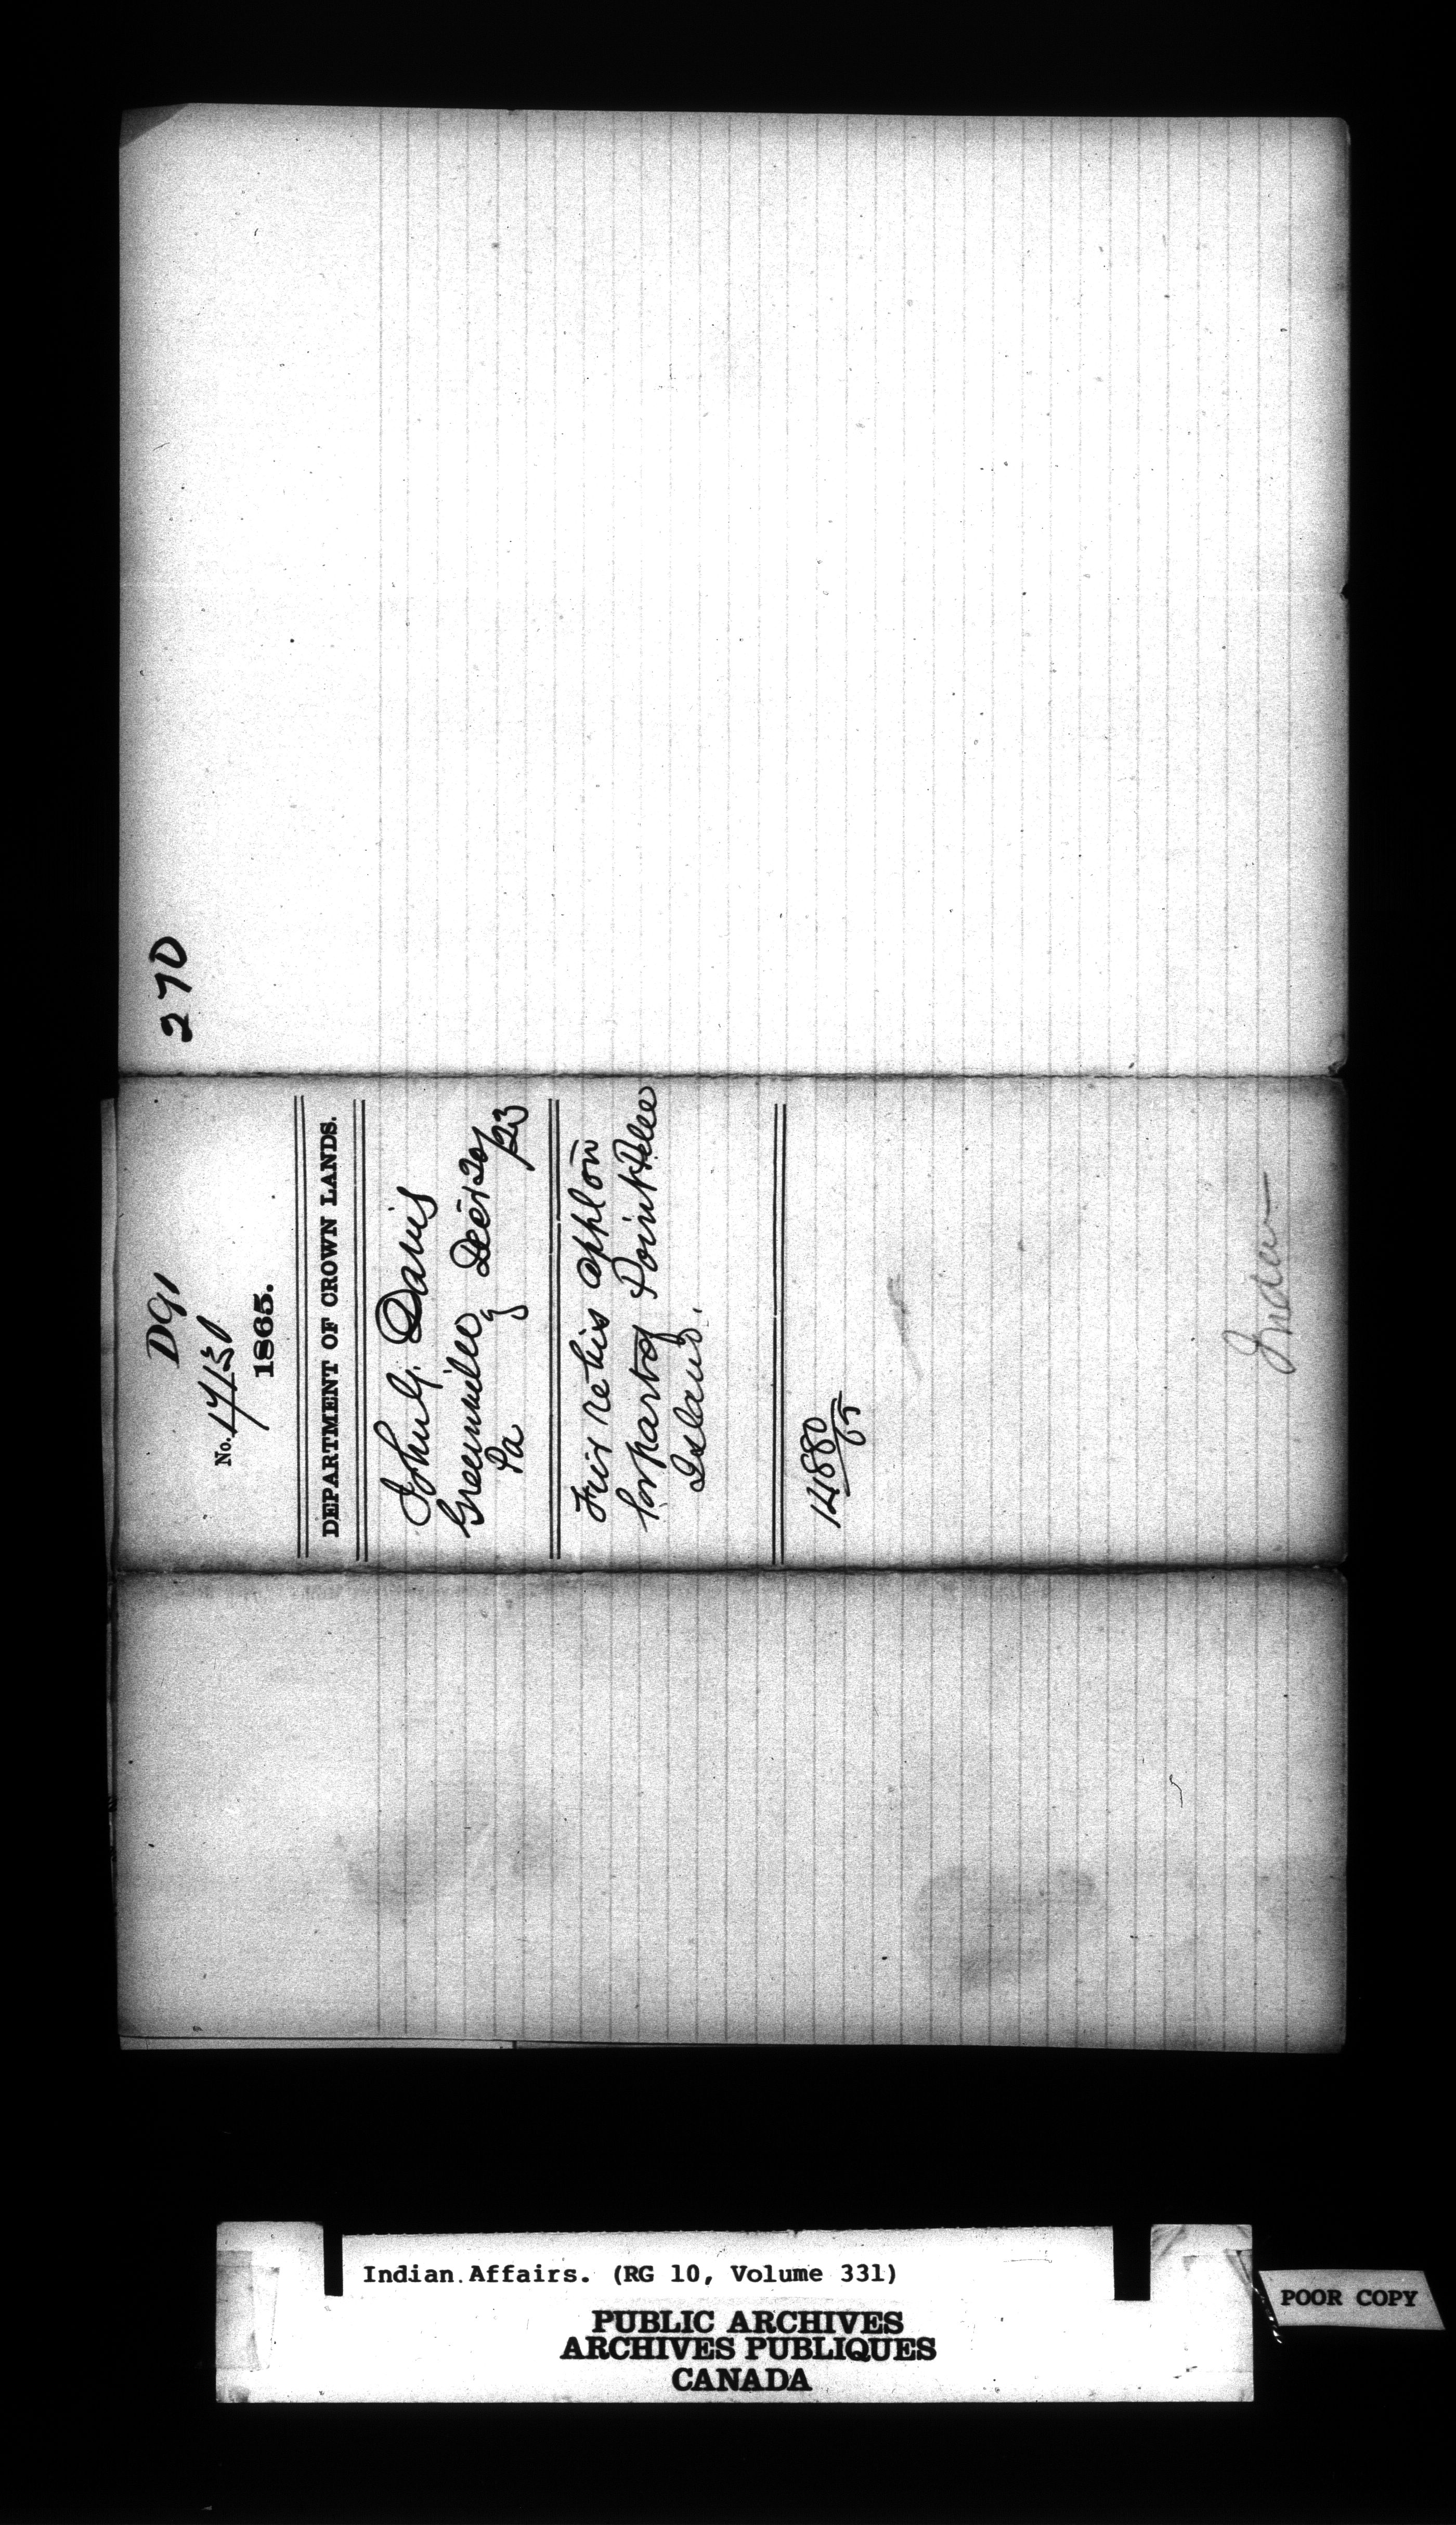 270
No. 17130
1865.
DEPARTMENT OF CROWN LANDS.
John G. Davis
Greenville
Pa
Decr 20/23
his applon
for part of Point Pelee
Island.
14880
65
Indian Affairs. (RG 10, Volume 331)
PUBLIC ARCHIVES
ARCHIVES PUBLIQUES
CANADA
POOR COPY